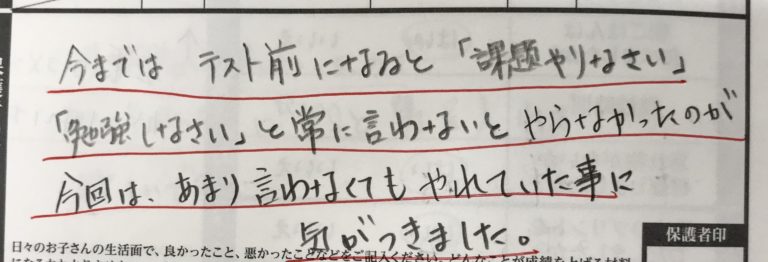 今までは テスト前になると「課題やりなさい」
「勉強しなさい」と常に言わないとやらなかったのが
今回は、あまり言わなくてもやれていた事に
気がつきました。
保護者印
日々のお子さんの生活面で、良かったこと、悪かったことなどをご記入ください。どんなことが成績を上げる材料